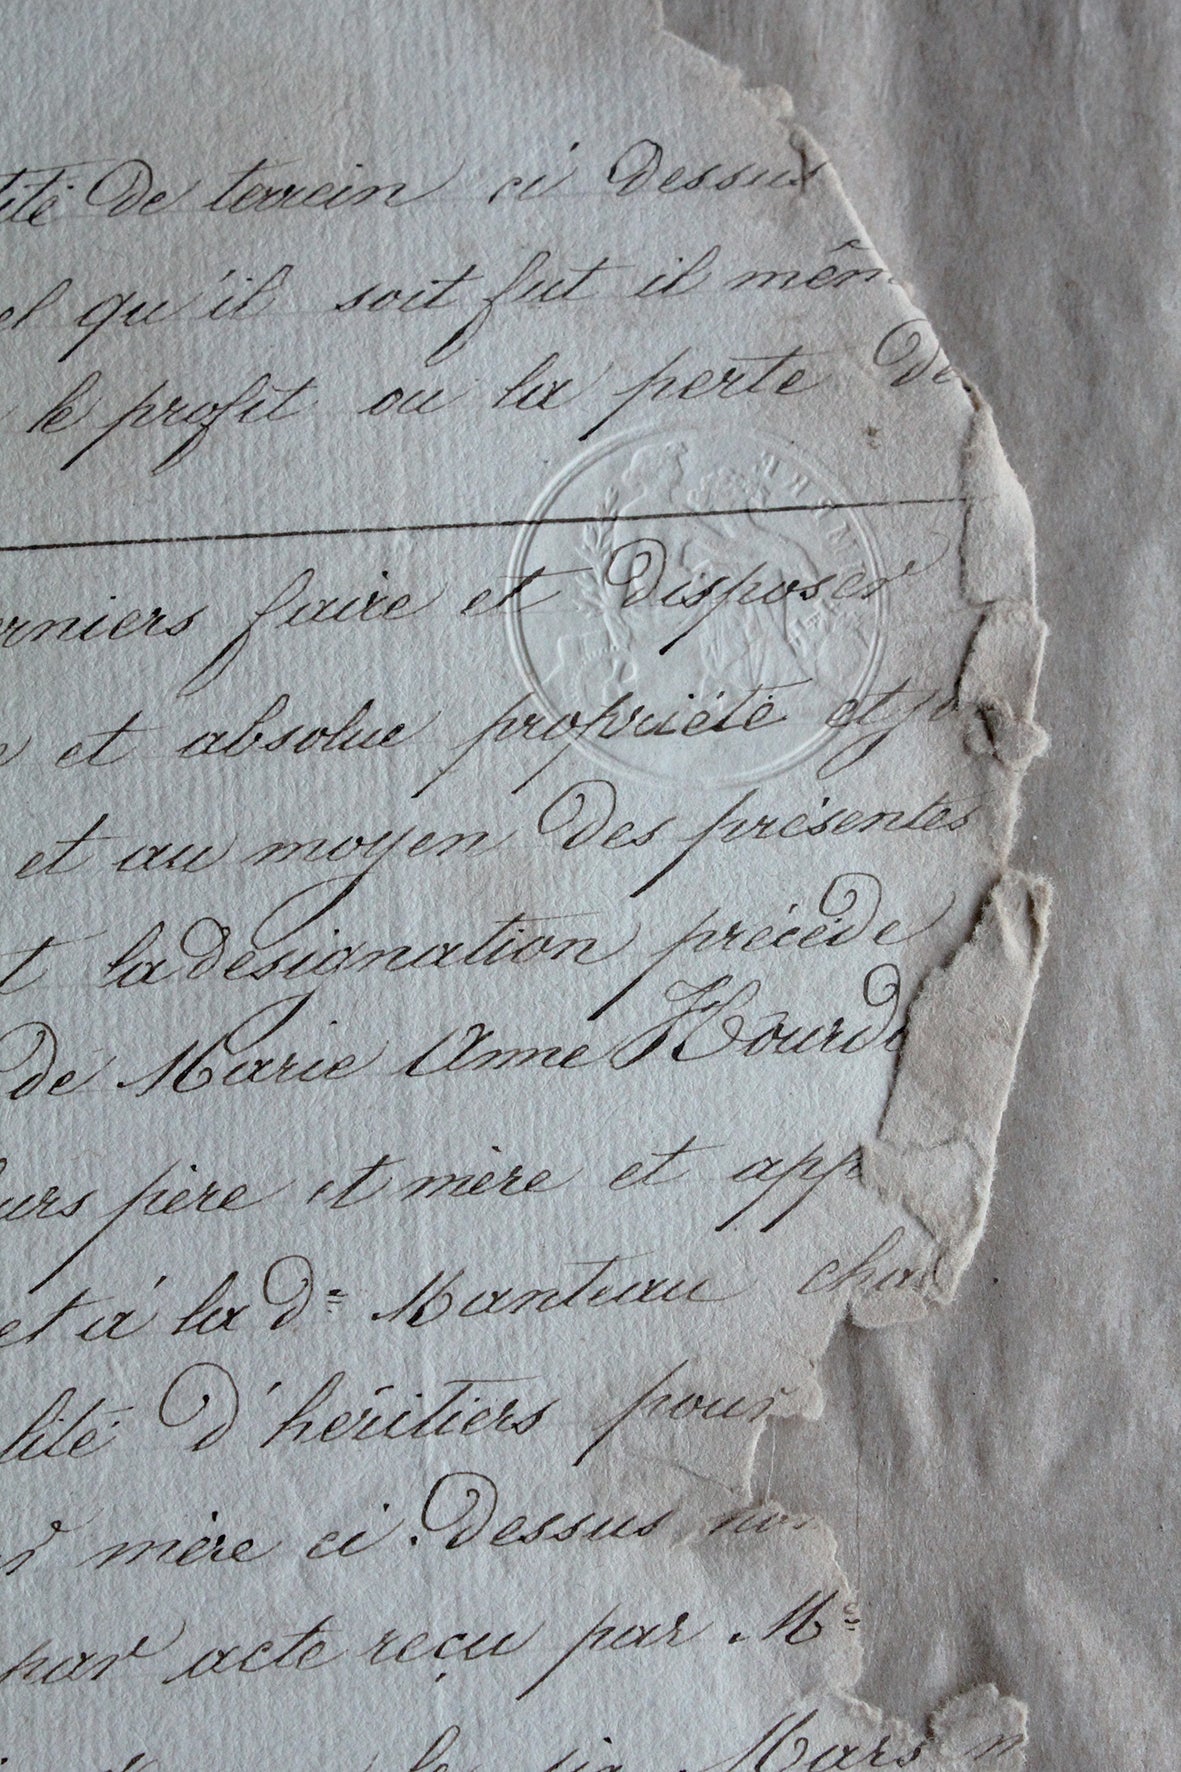 tité de terrein ci dessus
el qu'il soit fut il mêm
le profit ou la perte de
rniers faire et disposer
e et absolue propriété et jo
et au moyen des présentes
t la designation précéde
de Marie Anne Hourd
urs père et mère et app
et à la de Mantuau cha
lité d'héritiers pour
r mère ci dessus nom
par acte reçu par Me
le six Mars m